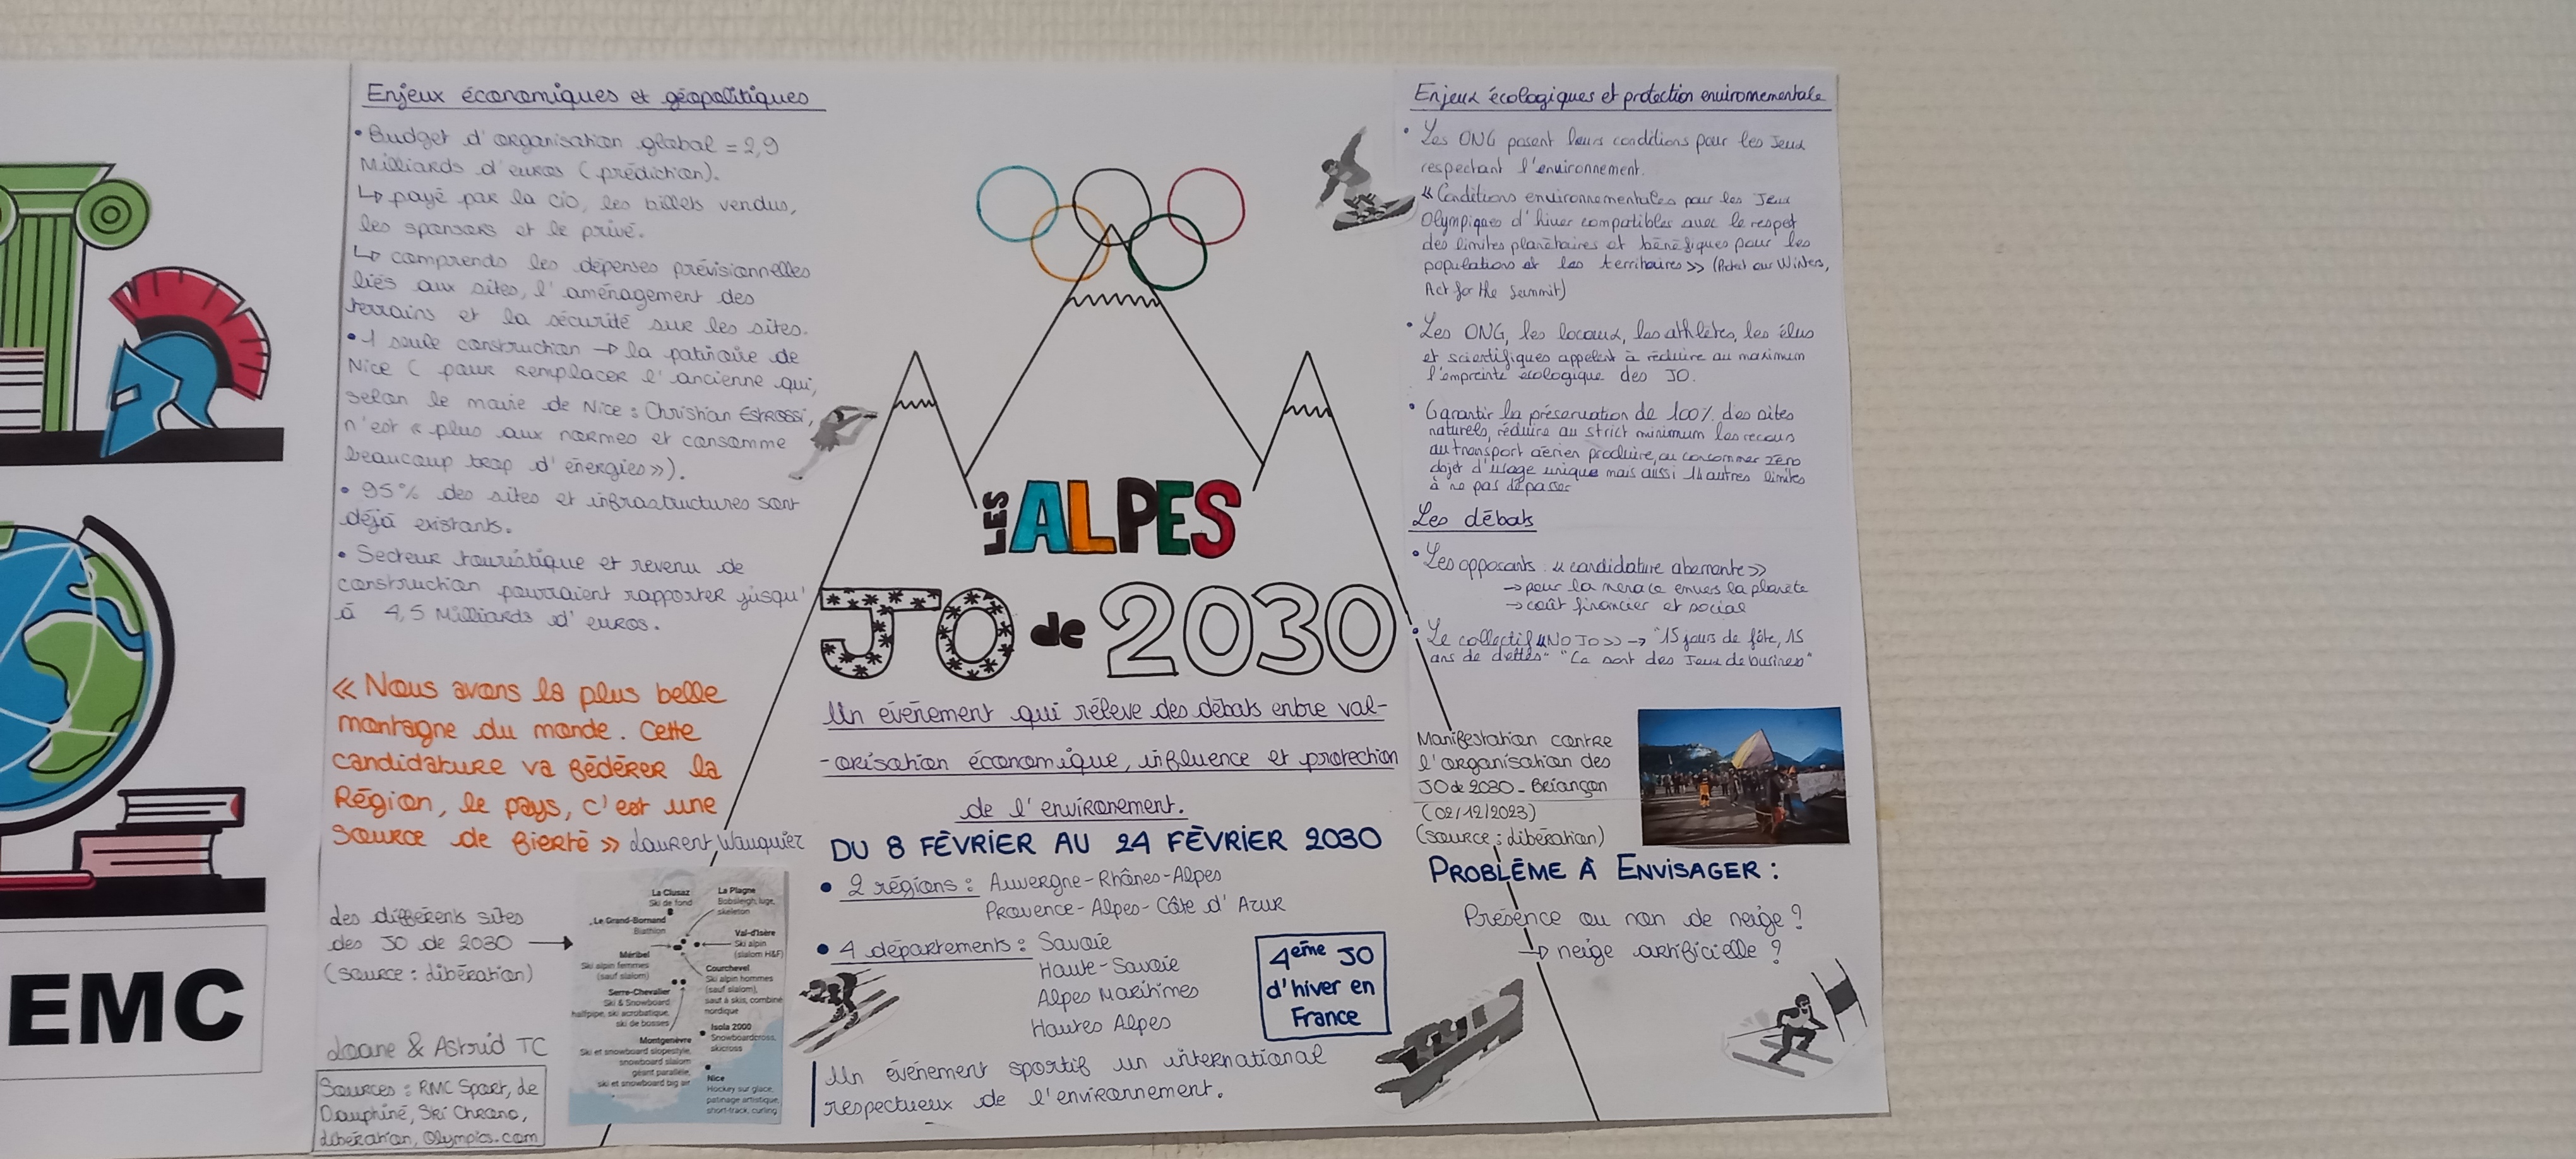 EMC
Enjeux économiques et géopolitiques
• Budget d'organisation global = 2,9
Milliards d'euros (prédiction).
↳ payé par la CIO, les billets vendus,
les sponsors et le privé.
↳ comprends les dépenses prévisionnelles
liés aux sites, l'aménagement des
terrains et la sécurité sur les sites.
• 1 seule construction → la patinoire de
Nice ( pour remplacer l'ancienne qui,
selon le maire de Nice : Christian Estrossi,
n'est « plus aux normes et consomme
beaucoup trop d'énergies »).
• 95% des sites et infrastructures sont
déjà existants.
• Secteur touristique et revenu de
construction pourraient rapporter jusqu'
à 4,5 Milliards d'euros.
« Nous avons la plus belle
montagne du monde. Cette
candidature va fédérer la
Région, le pays, c'est une
source de fierté » Laurent Wauquiez
Les différents sites
des JO de 2030 →
(source : Libération)
Loane & Astrid TC
Sources : RMC Sport, Le
Dauphiné, Ski Chrono,
Libération, Olympics.com
La Clusaz
Ski de fond
La Plagne
Bobsleigh, luge,
skeleton
Le Grand-Bornand
Biathlon
Val-d'Isère
Ski alpin
(slalom H&F)
Méribel
Ski alpin femmes
(sauf slalom)
Courchevel
Ski alpin hommes
(sauf slalom),
saut à skis, combiné
nordique
Serre-Chevalier
Ski & Snowboard
halfpipe, ski acrobatique,
ski de bosses
Isola 2000
Snowboardcross,
skicross
Montgenèvre
Ski et snowboard slopestyle,
snowboard slalom
géant parallèle,
ski et snowboard big air
Nice
Hockey sur glace,
patinage artistique,
short-track, curling
LES ALPES
JO de 2030
Un événement qui rélève des débats entre val-
-orisation économique, influence et protection
de l'environement.
DU 8 FÉVRIER AU 24 FÉVRIER 2030
• 2 régions : Auvergne-Rhônes-Alpes
Provence-Alpes-Côte d'Azur
• 4 départements : Savoie
Haute-Savoie
Alpes Maritimes
Hautes Alpes
4ème JO
d'hiver en
France
Un événement sportif un international
respectueux de l'environnement.
Enjeux écologiques et protection environnementale
• Les ONG posent leurs conditions pour les Jeux
respectant l'environnement.
« Conditions environnementales pour les Jeux
Olympiques d'hiver compatibles avec le respet
des limites planétaires et bénéfiques pour les
populations et les territoires » (Protect our Winters,
Act for the Summit)
• Les ONG, les locaux, les athlètes, les élus
et scientifiques appelent à réduire au maximum
l'empreinte écologique des JO.
• Garantir la préservation de 100% des sites
naturels, réduire au strict minimum les recours
au transport aérien produire, ou consommer zéro
objet d'usage unique mais aussi 14 autres limites
à ne pas dépasser
Les débats
• Les opposants : « candidature aberrante »
→ pour la menace envers la planète
→ coût financier et social
• Le collectif « NO JO » → "15 jours de fête, 15
ans de dettes" "Ce sont des Jeux de business"
Manifestation contre
l'organisation des
JO de 2030 - Briançon
(02/12/2023)
(source : Libération)
PROBLÈME À ENVISAGER :
Présence ou non de neige ?
→ neige artificielle ?